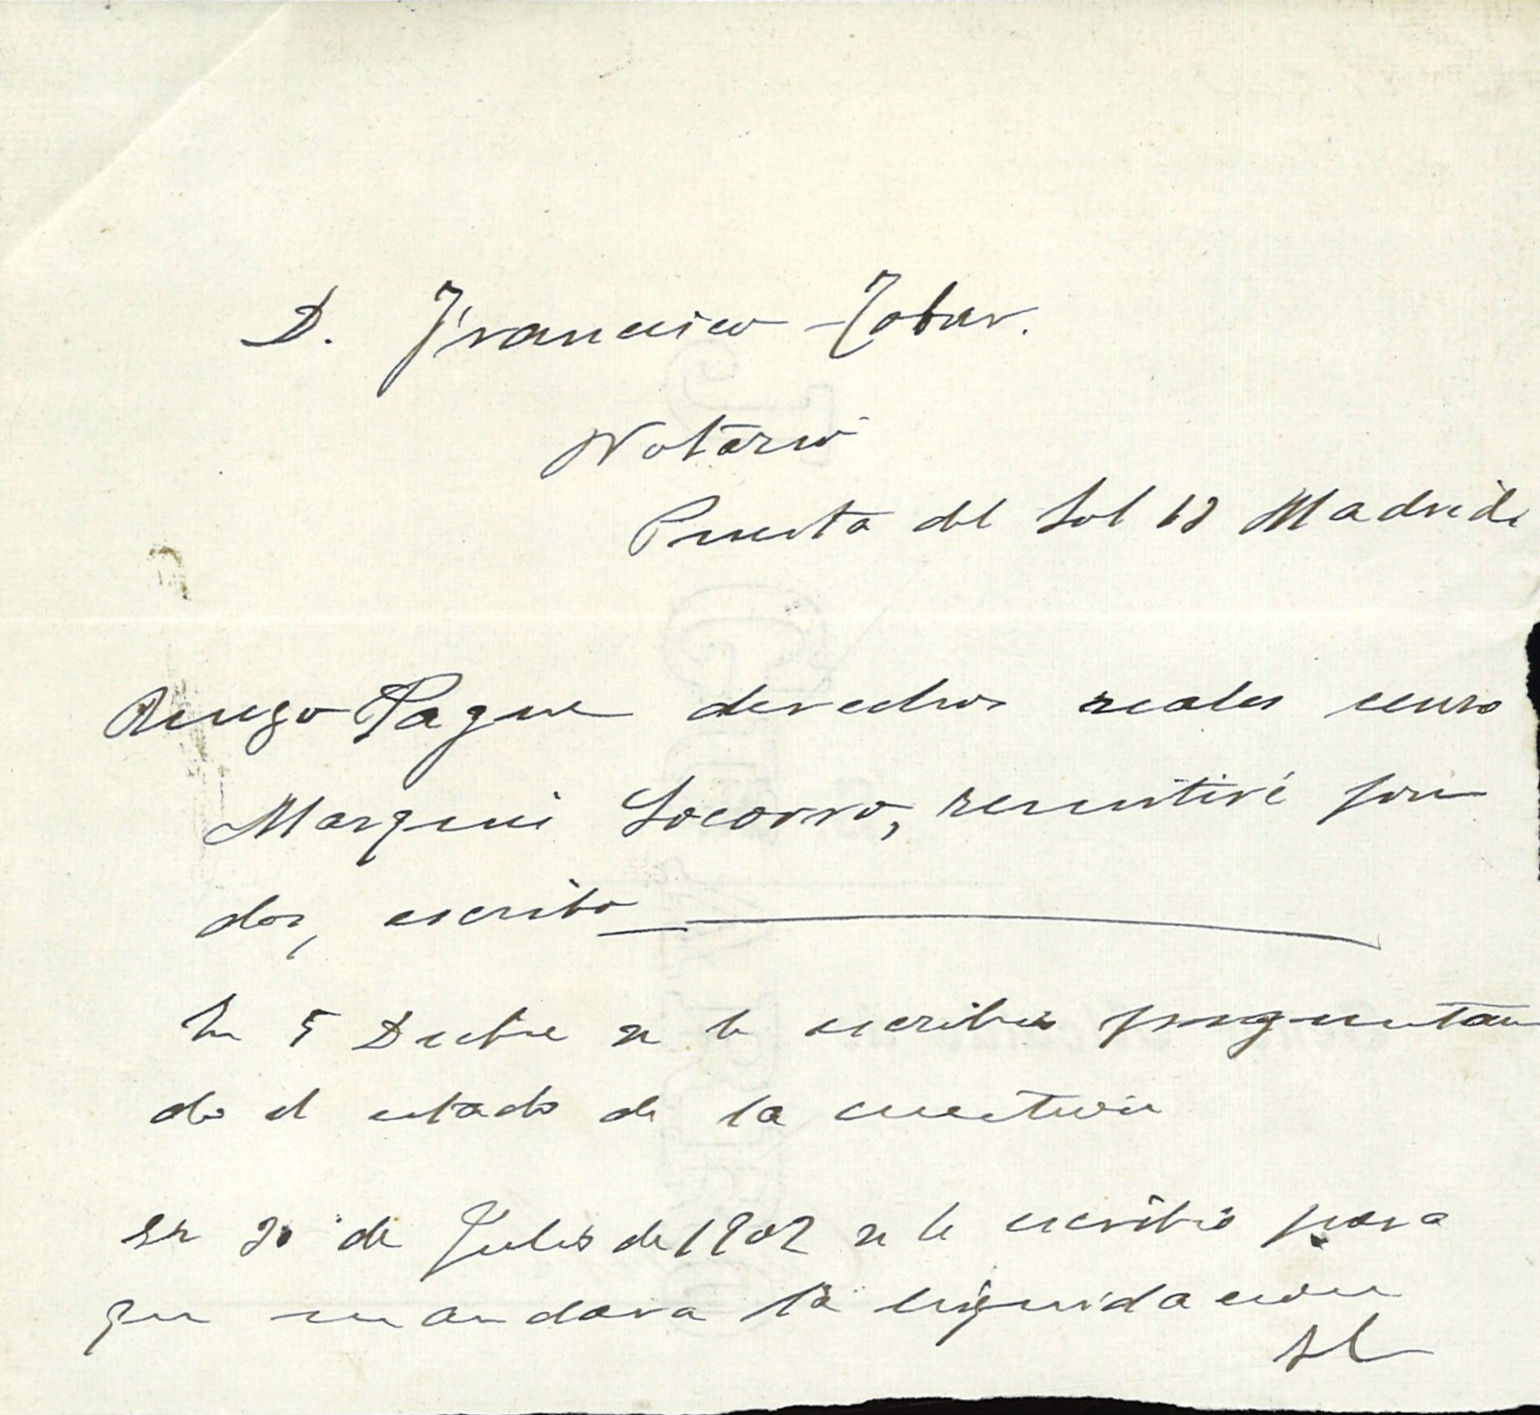 D. Francisco Tobar.
Notario
Puerta del Sol 13 Madrid
Ruego Pague derechos reales censo
Marqués Socorro, remitiré fon
dos, escribo
En 5 Dicbre se le escribió preguntan
do el estado de la cuestión
En 20 de Julio de 1902 se le escribió para
que mandara la liquidación